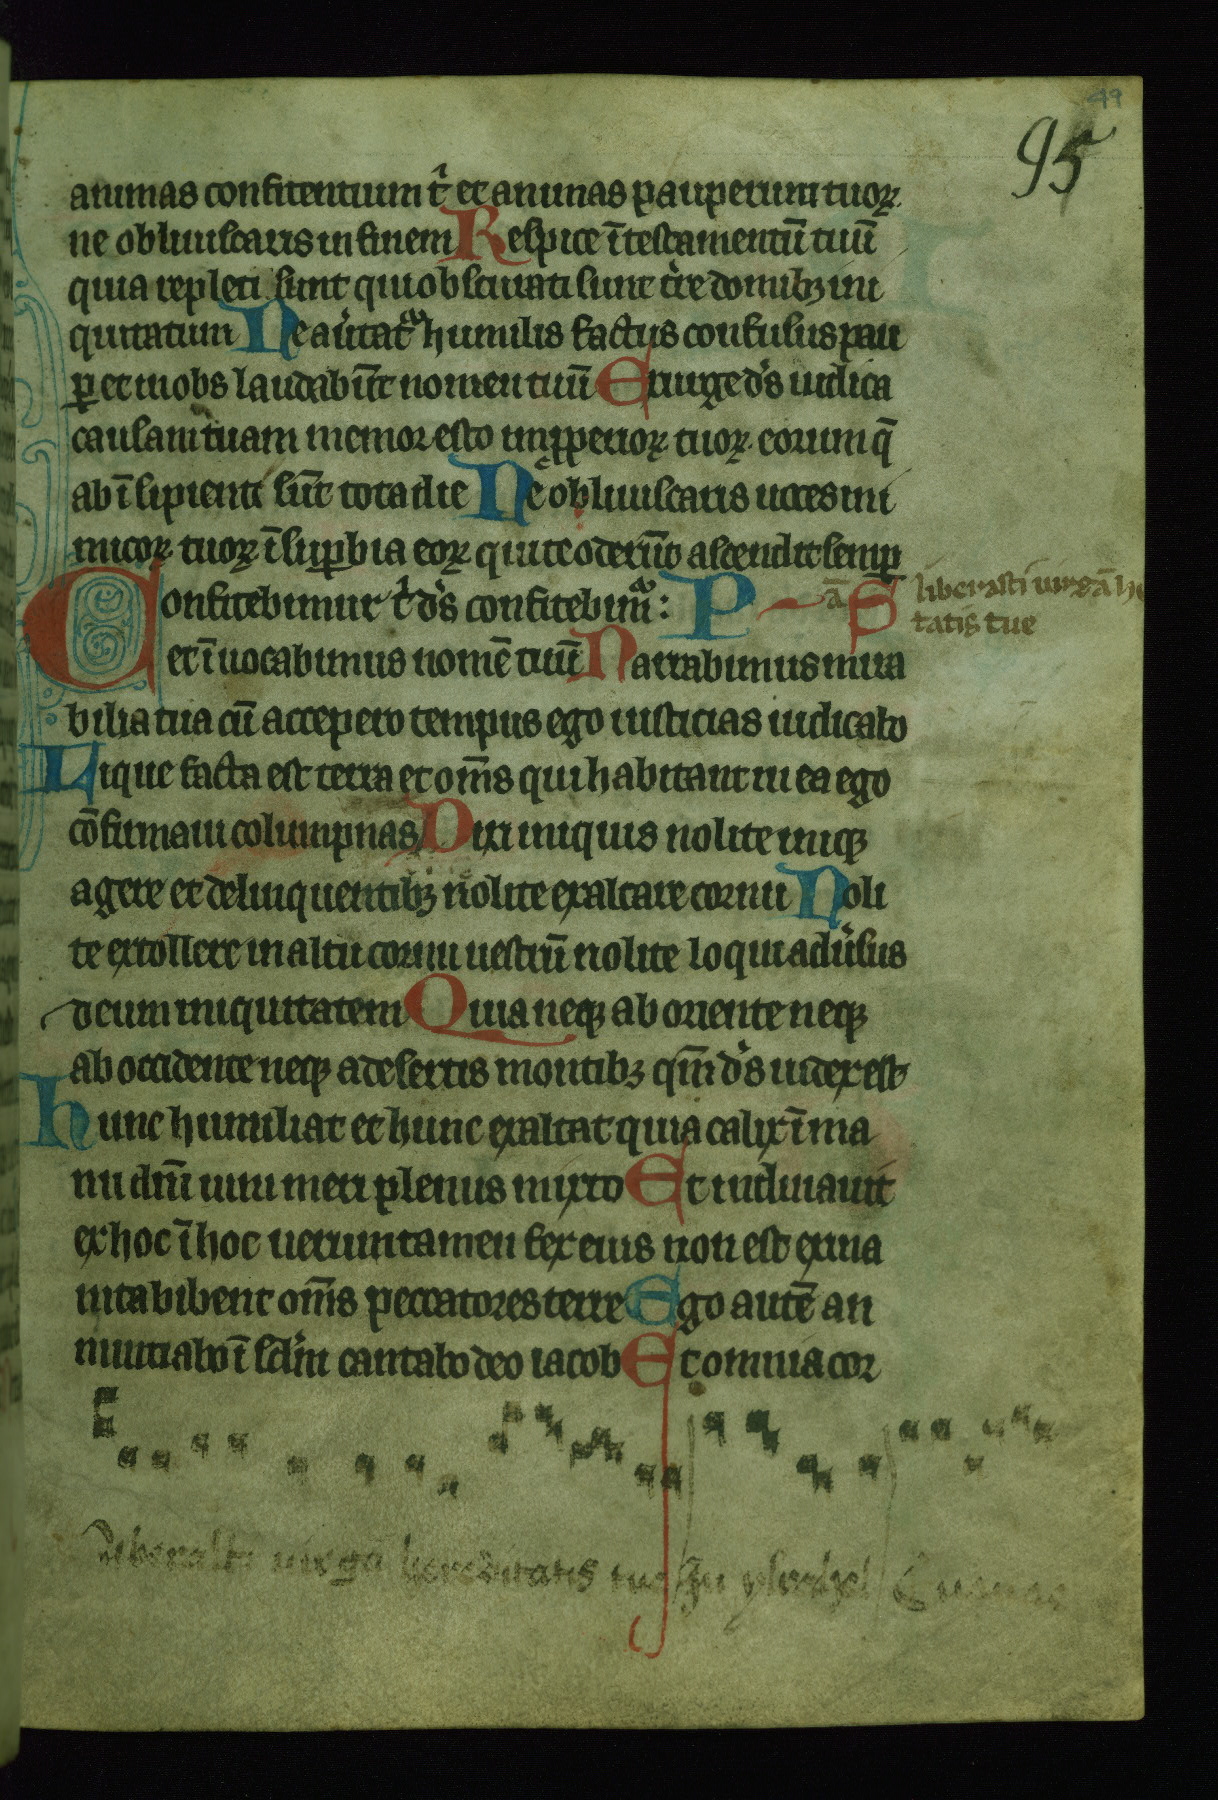 49
95
animas confitentium t̑ et animas pauperum tuoꝝ
ne obliuiscaris in finem Respice ī testamentū tuū
quia repleti sunt qui obscurati sunt t̄re domibꝫ ini
quitatum Ne au̾tat᷑ humilis factus confusus pau
ꝑ et inobs laudabūt nomen tuū Exurge d̄s iudica
causam tuam memor esto inpperioꝝ tuoꝝ eorum q̄
ab īsipiente sūt tota die Ne obliuiscaris uoces ini
micoꝝ tuoꝝ īsuꝑbia eoꝝ qui te oderūt ascendit semꝑ
Confitebimur t̑ d̄s confitebim᷑: P ā S liberasti uirgā he
tatis tue
et īuocabimus nomē tuū Narrabimus mira
bilia tua cū accepero tempus ego iusticias iudicabo
Lique facta est terra et om̄s qui habitant in ea ego
cōfirmaui columpnas Dixi iniquis nolite iniqꝫ
agere et delinquentibꝫ nolite exaltare cornu Noli
te extollere in altū cornu uestrū nolite loqui adu̾sus
deum iniquitatem Quia neqꝫ ab oriente neqꝫ
ab occidente neqꝫ a desertis montibꝫ qm̄ d̄s iudex est
hunc humiliat et hunc exaltat quia calix ī ma
nu dn̄i uini meri plenus mixto Et inclinauit
ex hoc ī hoc ueruntamen fex eius non est exina
nita bibent om̄s peccatores terre Ego autē an
nuntiabo ī sc̄lm cantabo deo iacob Et omnia cor
Liberasti uirgā hereditatis tue